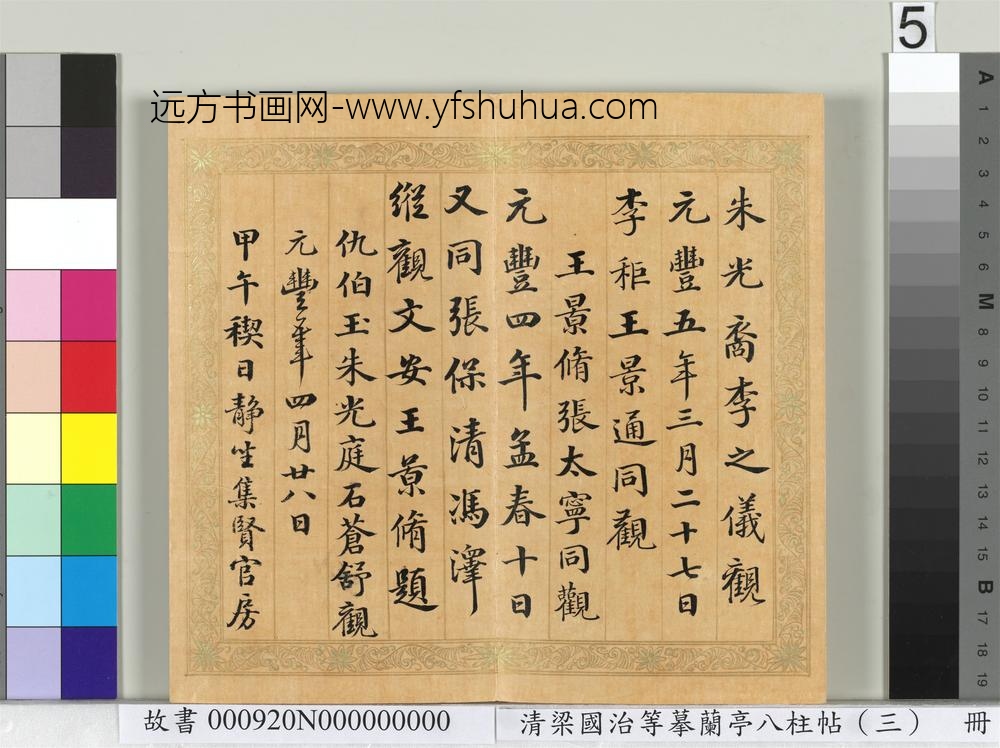 5
远方书画网-www.yfshuhua.com
朱光裔李之儀觀
元豐五年三月二十七日
李秬王景通同觀
王景脩張太寧同觀
元豐四年孟春十日
又同張保清馮澤
縱觀文安王景脩題
仇伯玉朱光庭石蒼舒觀
元豐年四月廿八日
甲午稧日静坐集賢官房
A
1
2
3
4
5
6
M
8
9
10
11
12
13
14
15
B
17
18
19
故書 000920N000000000
清梁國治等摹蘭亭八柱帖（三） 冊